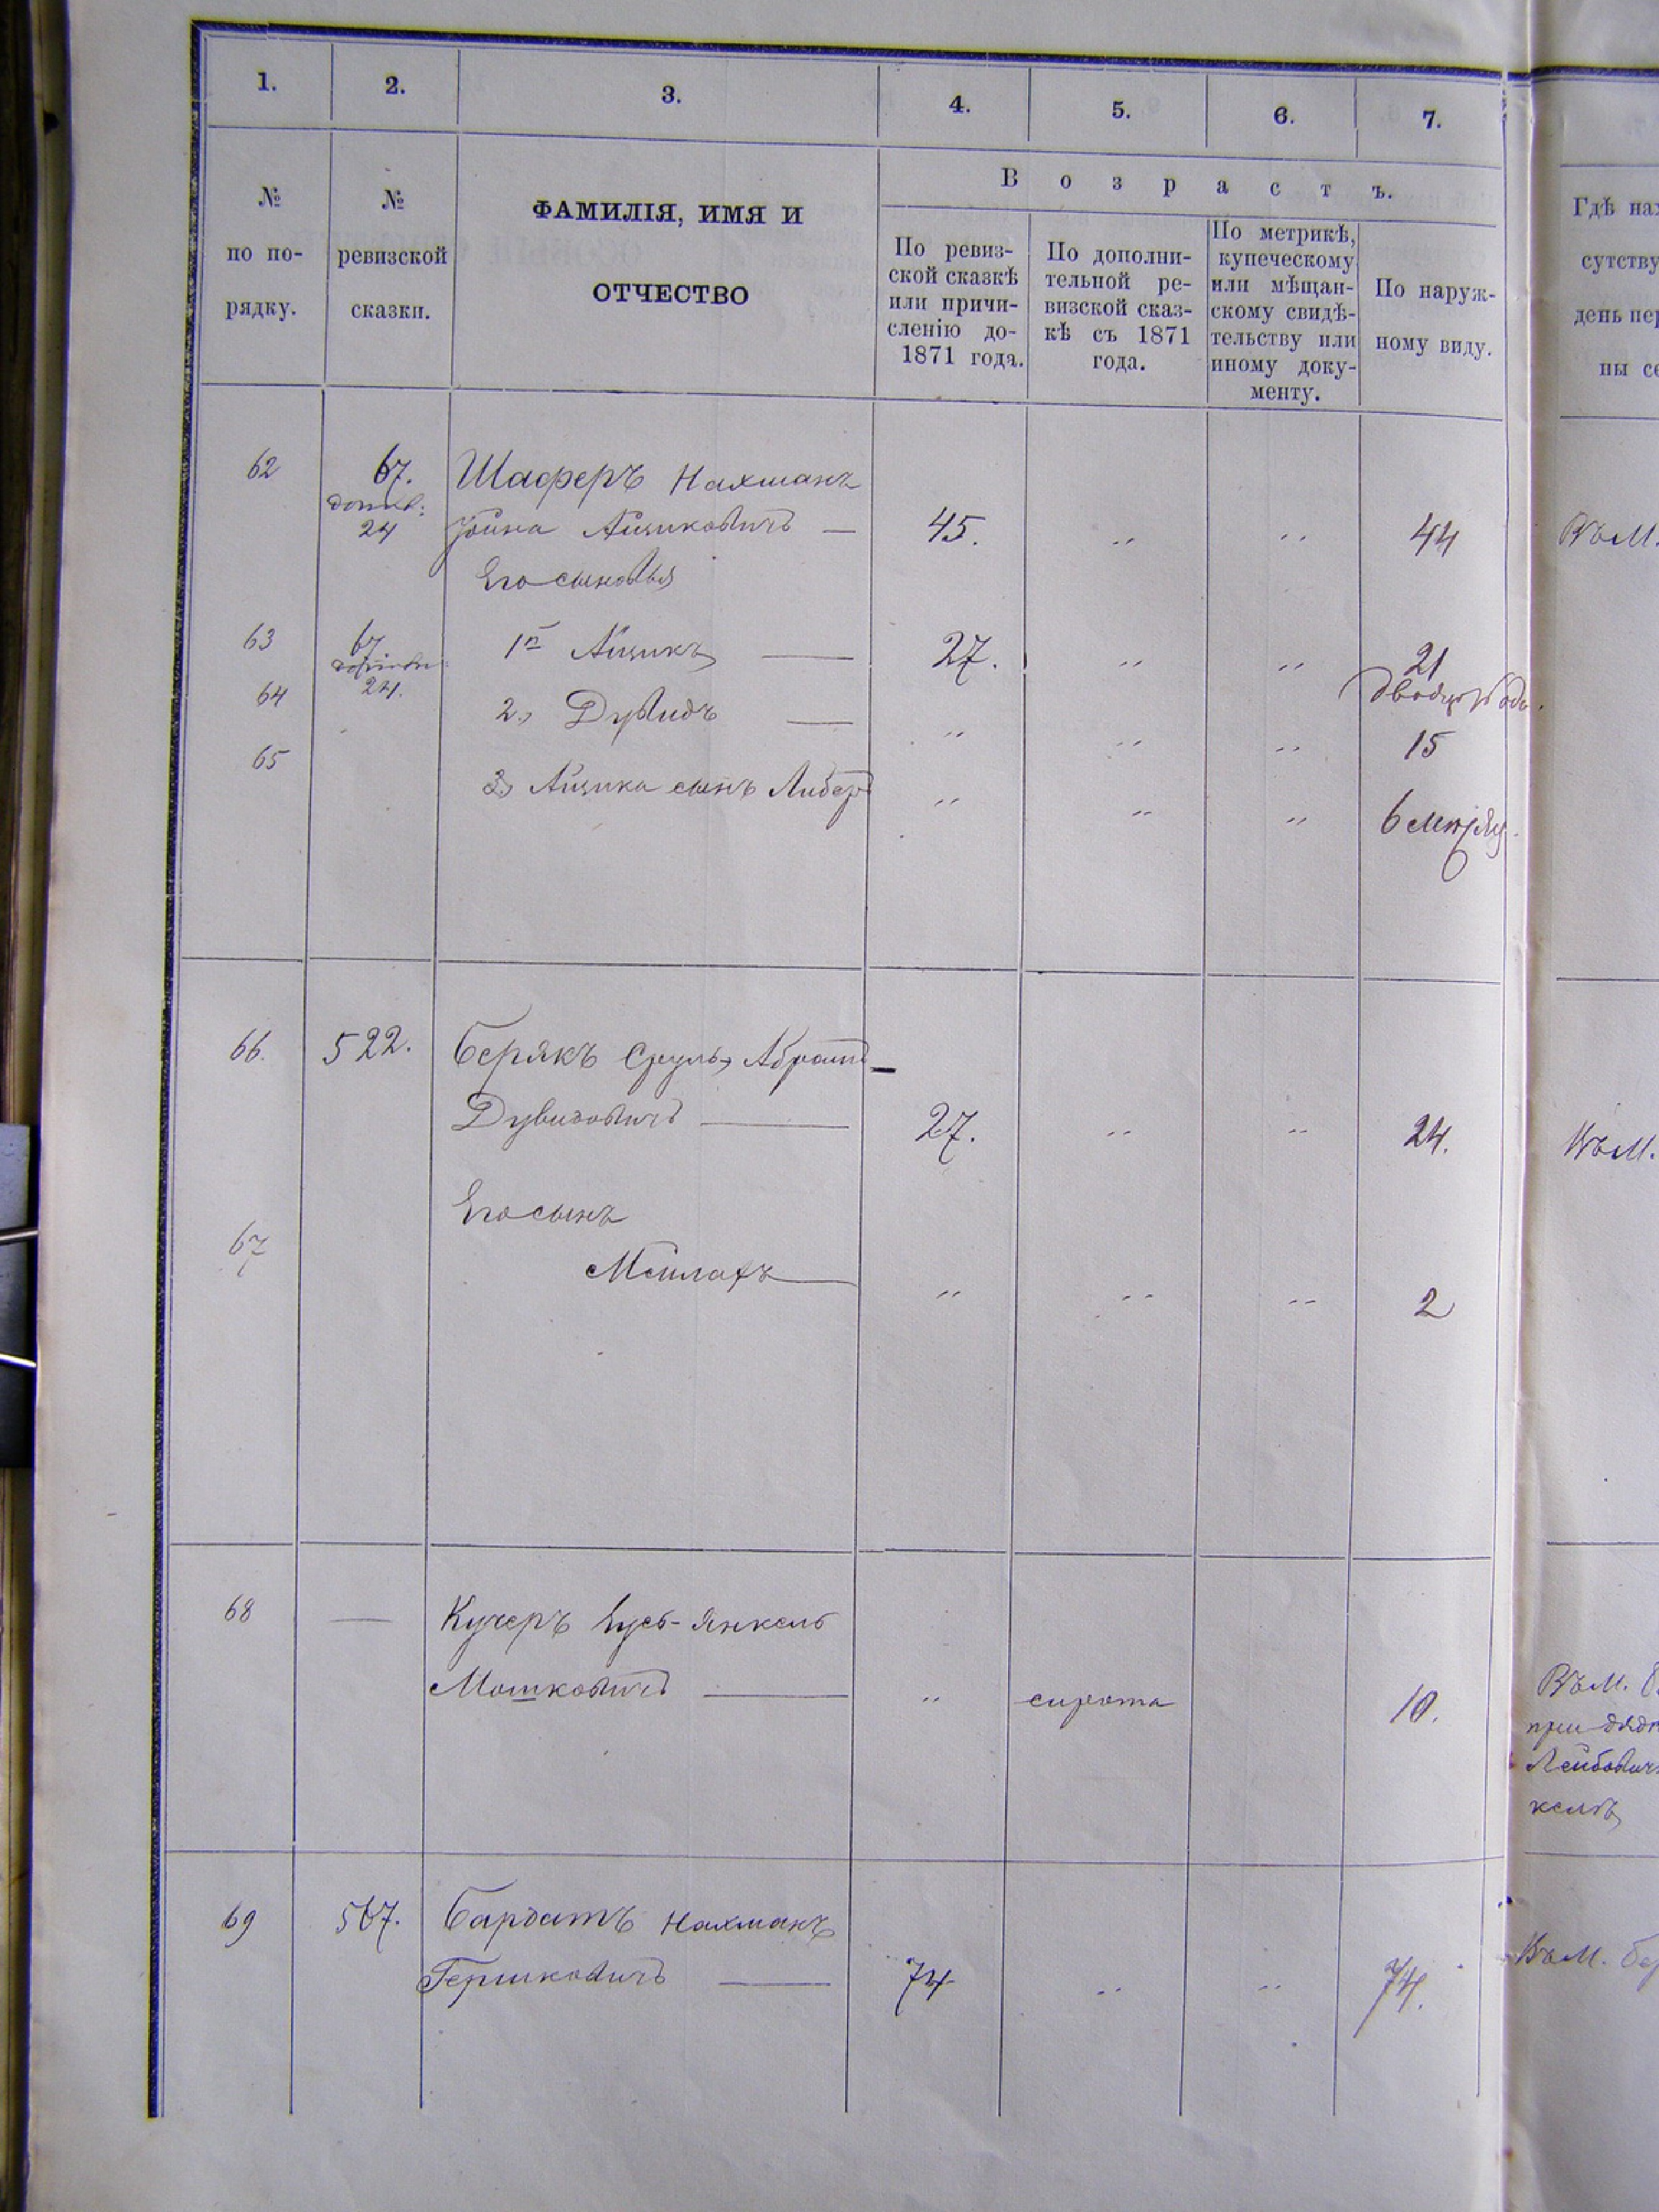 1.
2.
3.
4.
5.
6.
7.
№
по по-
рядку.
№
ревизской
сказки.
ФАМИЛІЯ, ИМЯ И
ОТЧЕСТВО
Возрастъ.
По ревиз-
ской сказкѣ
или причи-
сленію до-
1871 года.
По дополни-
тельной ре-
визской сказ-
кѣ съ 1871
года.
По метрикѣ,
купеческому
или мѣщан-
скому свидѣ-
тельству или
иному доку-
менту.
По наруж-
ному виду.
Гдѣ нах
сутству
день пер
ны се
62 67. Шаферъ Нахманъ
24 Іойна Айзиковичъ — 45. „ „ 44 Въ М.
Его сыновья
63 67 1й Айзикъ — 27. „ „ 21
24.
64 2, Дувидъ — „ „ „ 15
65 3, Айзика сынъ Либеръ „ „ „ 6 мѣсяц.
66. 522. Берякъ Сруль, Абрамъ —
Дувидовичъ — 27. „ „ 24. Въ М.
Его сынъ
67 Мейлахъ — „ „ „ 2
68 — Кучеръ Зусь-Янкель
Мошковичъ — „ сирота 10. Въ М.
при дядѣ
Лейбович
келѣ
69 567. Бардатъ Нахманъ
Гершковичъ — 74 „ „ 74. Въ М. Бер